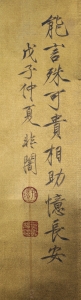 能言殊可貴相助憶長安
戊子仲夏非闇